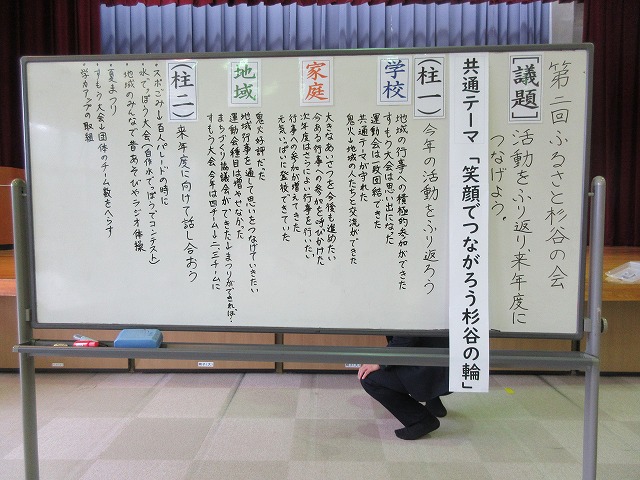 第二回 ふるさと杉谷の会
[議題]
活動をふり返り、来年度に
つなげよう。
共通テーマ 「笑顔でつながろう杉谷の輪」
(柱一)
今年の活動をふり返ろう
学校
地域の行事への積極的参加ができた
すもう大会は思い出になった
運動会は一致団結できた
共通テーマが守れた
鬼火→地域の人たちと交流ができた
家庭
大きなあいさつを今後も進めたい
今ある行事への参加を呼びかけた
次年度はさらによい行事を行いたい
行事への参加が増えてきた
元気いっぱいに登校できていた
地域
鬼火好評だった
地域行事を通して思いをつなげていきたい
運動会種目は増やせなかった
まちづくり協議会ができた→まつりができれば・
すもう大会 今年は四チーム→二、三チームに
(柱二)
来年度に向けて話し合おう
・スポごみ→百人パレードの時に
・水でっぽう大会(自作水でっぽうでコンテスト)
・地域のみんなで昔あそびやラジオ体操
・夏まつり
・すもう大会→団体のチーム数をへらす
・学力アップの取組